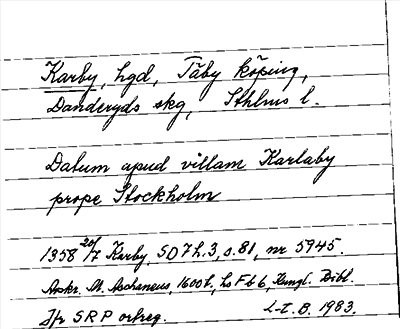 Karby, hgd, Täby köping,
Danderyds skg, Sthlms l.
Datum apud villam Karlaby
prope Stockholm
1358 20/7 Karby, SD 7 h. 3, s. 81, nr 5945.
Avskr. M. Aschaneus 1600 t., hs F b 6, Kungl. Bibl.
Jfr SRP ortreg.
L-E. B. 1983.